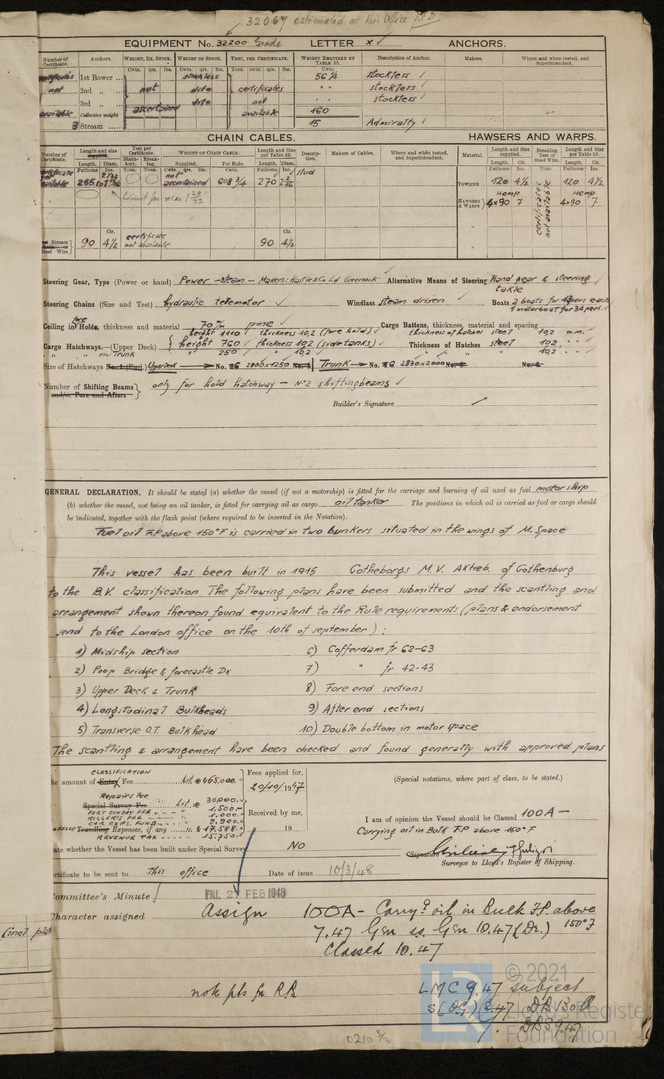 32067 estimated at this Office
EQUIPMENT No. 32200 Grade LETTER X ANCHORS.
Number of Certificate. Anchors. WEIGHT, EX. STOCK. WEIGHT OF STOCK. TEST, PER CERTIFICATE. WEIGHT REQUIRED BY TABLE 53. Description of Anchor. Makers. Where and when tested, and Superintendent.
Cwts. qrs. lbs. Cwts. qrs. lbs. Tons. cwts. qrs. lbs. Cwts.
certificates 1st Bower stockless 56 ½ stockless
not 2nd „ not dito certificates „ stockless
3rd „ dito not „ stockless
available Collective weight ascertained available 160
3 Stream 15 Admiralty
CHAIN CABLES. HAWSERS AND WARPS.
Number of Certificate. Length and size supplied. Test per Certificate. WEIGHT OF CHAIN CABLE. Length and Size per Table 53. Description. Makers of Cables. Where and when tested, and Superintendent. Material. Length and Size supplied. Breaking Test of Steel Wire. Length and Size per Table 53.
Length, Diam. Statutory. Breaking. Supplied. Per Rule. Length, Diam.
Fathoms Ins. Tons. Tons. Cwts. qrs. lbs. Cwts. Fathoms Ins. Fathoms Ins. Tons. Fathoms Ins.
certificate available 265 not ascertained 608 3/4 270 stud TOWLINE 120 4½ 120 4½
Hemp Hemp
HAWSERS & WARPS 4x90 7 certificates not available 4x90 7
Cir. Cir.
Stream Steel Wire 90 4½ certificate not available 90 4½
Steering Gear, Type (Power or hand) Power - steam - Makers: Hastie & Co Ld Greenock Alternative Means of Steering Hand gear & steering takle
Steering Chains (Size and Test) hydraulic telemotor Windlass steam driven Boats 2 boats for 49 pers each
1 motorboat for 34 pers.
Ceiling in fore Holds, thickness and material 70 m/m pine Cargo Battens, thickness, material and spacing
Cargo Hatchways.—(Upper Deck) height 1110 thickness 10,2 (fore hold) thickness of hatches steel 10,2 m.m.
height 760 thickness 10,2 (side tanks) Thickness of Hatches steel 10,2 „ „
„ „ on Trunk „ 250 „ 10,2 10,2 „ „
Size of Hatchways No. 1 (Fwd.) Upperdeck No. 16 2800x1250 No. 3 Trunk No. 16 2830x2000 No. 5 No. 6
Number of Shifting Beams and/or Fore-and-Afters only for hold hatchway — No 2 shiftingbeams
Builder's Signature
GENERAL DECLARATION. It should be stated (a) whether the vessel (if not a motorship) is fitted for the carriage and burning of oil used as fuel motorship
(b) whether the vessel, not being an oil tanker, is fitted for carrying oil as cargo oil tanker The positions in which oil is carried as fuel or cargo should
be indicated, together with the flash point (where required to be inserted in the Notation).
Fuel oil F.P. above 150°F is carried in two bunkers situated in the wings of M. Space
This vessel has been built in 1945 Gotheborgs M.V. Aktieb. of Gothenburg
to the B.V. classification. The following plans have been submitted and the scantling and
arrangement shown thereon found equivalent to the Rule requirements (plans & endorsement
send to the London office on the 10th of september):
1) Midship section 6) Cofferdam fr 62-63
2) Poop Bridge & forecastle Dk 7) „ fr 42-43
3) Upper Deck & Trunk 8) Fore end sections
4) Longitudinal Bulkheads 9) After end sections
5) Transverse O.T. Bulkhead 10) Double bottom in motor space
The scantling & arrangement have been checked and found generally with approved plans
CLASSIFICATION
The amount of Entry Fee Lit. 465.000.- Fees applied for, (Special notations, where part of class, to be stated.)
Repairs Fee 20/10/1947
Special Survey Fee Lit. 30.000.-
PART SUNDAY FEE 1.500.- Received by me, I am of opinion the Vessel should be Classed 100A —
1.000.- Carrying oil in Bulk F.P. above 150°F
CAR EXPS. FUND 9.900.-
Travelling Expenses, if any 17.588.- 19
REVENUE TAX 15.750.-
State whether the Vessel has been built under Special Survey NO Signature
Surveyor to Lloyd's Register of Shipping.
Certificate to be sent to This office Date of issue 10/3/48
Committee's Minute FRI. 27 FEB 1948
Character assigned Assign 100A - Carryg oil in Bulk F.P. above 150°F
7.47 Gen ss. Gen 10.47 (Dr.)
Classed 10.47
note pts for R.B LMC 9,47 subject
© 2021
Lloyd's Register
Foundation
0210 3/3